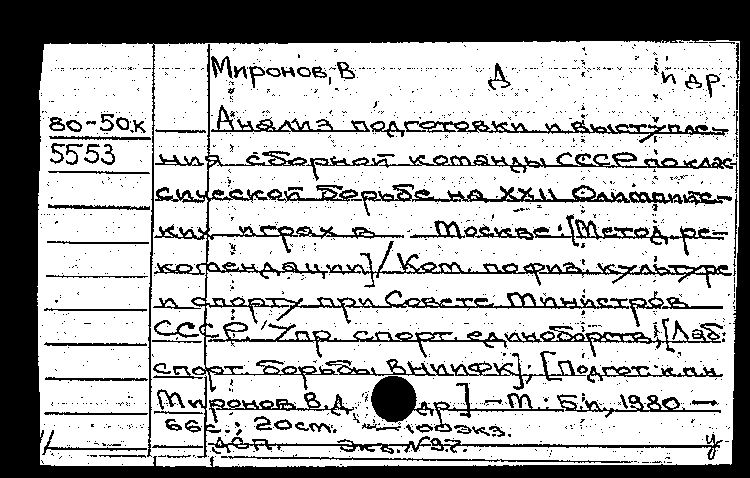 Миронов, В Д и др.
80-50к Анализ подготовки и выступле-
5553 ния сборной команды СССР по клас-
сической борьбе на XXII Олимпийс-
ких играх в Москве: [Метод. ре-
комендации] / Ком. по физ. культуре
и спорту при Совете Министров
СССР. Упр. спорт. единоборств; [Лаб.
спорт. борьбы ВНИИФК]; [Подгот:
Миронов В.Д. др.] - М.: Б.и, 1980 —
66с.; 20см. — 100экз.
ДСП. Экз. №97.